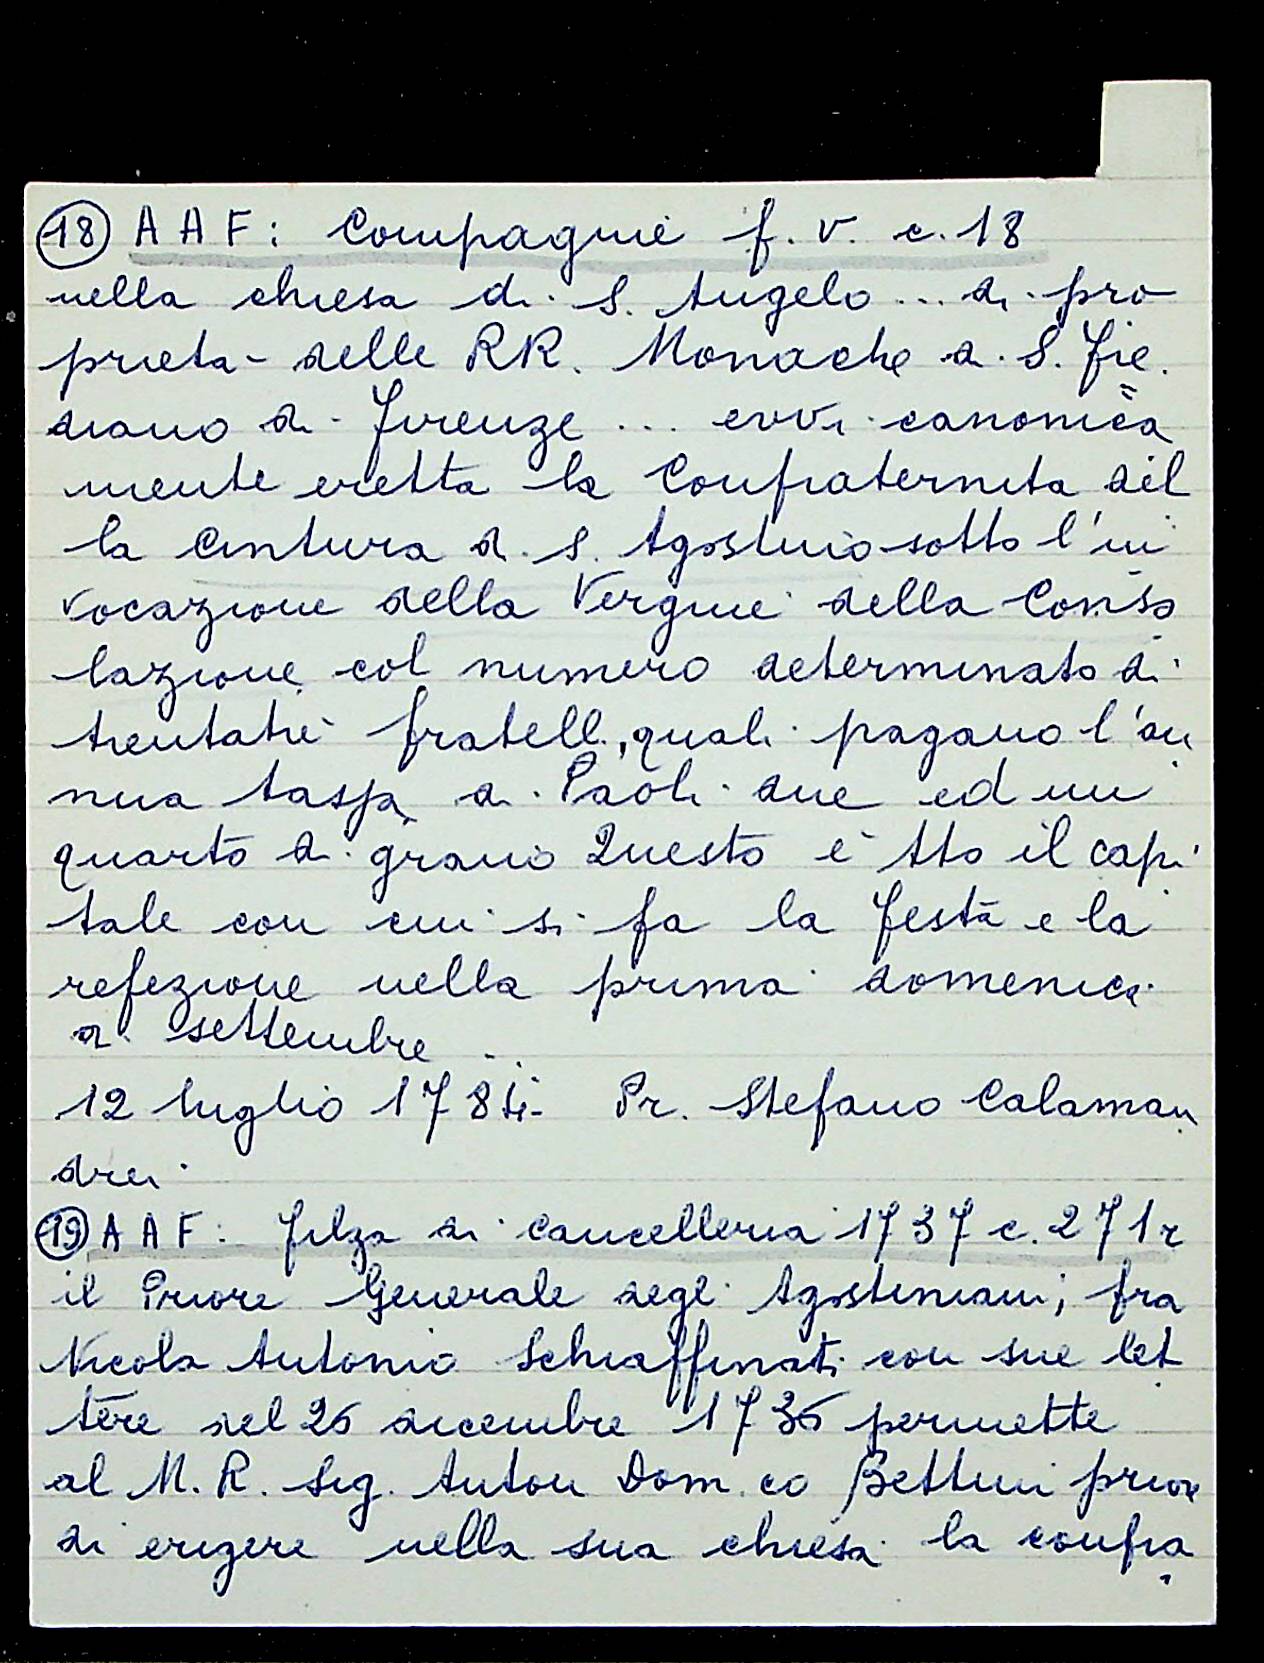 18 A A F: Compagnie f. V. c. 18
nella chiesa di S. Angelo ... di pro
prietà delle RR. Monache di S. Fre
diano di Firenze ... evvi canonica
mente eretta la Confraternita del
la Cintura di S. Agostino sotto l'in
vocazione della Vergine della Conso
lazione col numero determinato di
trentatrè fratelli, quali pagano l'an
nua tassa di Paoli due ed un
quarto di grano Questo è tto il capi
tale con cui si fa la festa e la
refezione nella prima domenica
di settembre
12 luglio 1784 Pr. Stefano Calaman
drei
19 A A F: Filza di Cancelleria 1737 c. 271 r
il Priore Generale degli Agostiniani, fra
Nicola Antonio Schiaffinati con sue let
tere del 26 dicembre 1736 permette
al M. R. Sig. Anton Dom.co Bettini priore
di erigere nella sua chiesa la confra